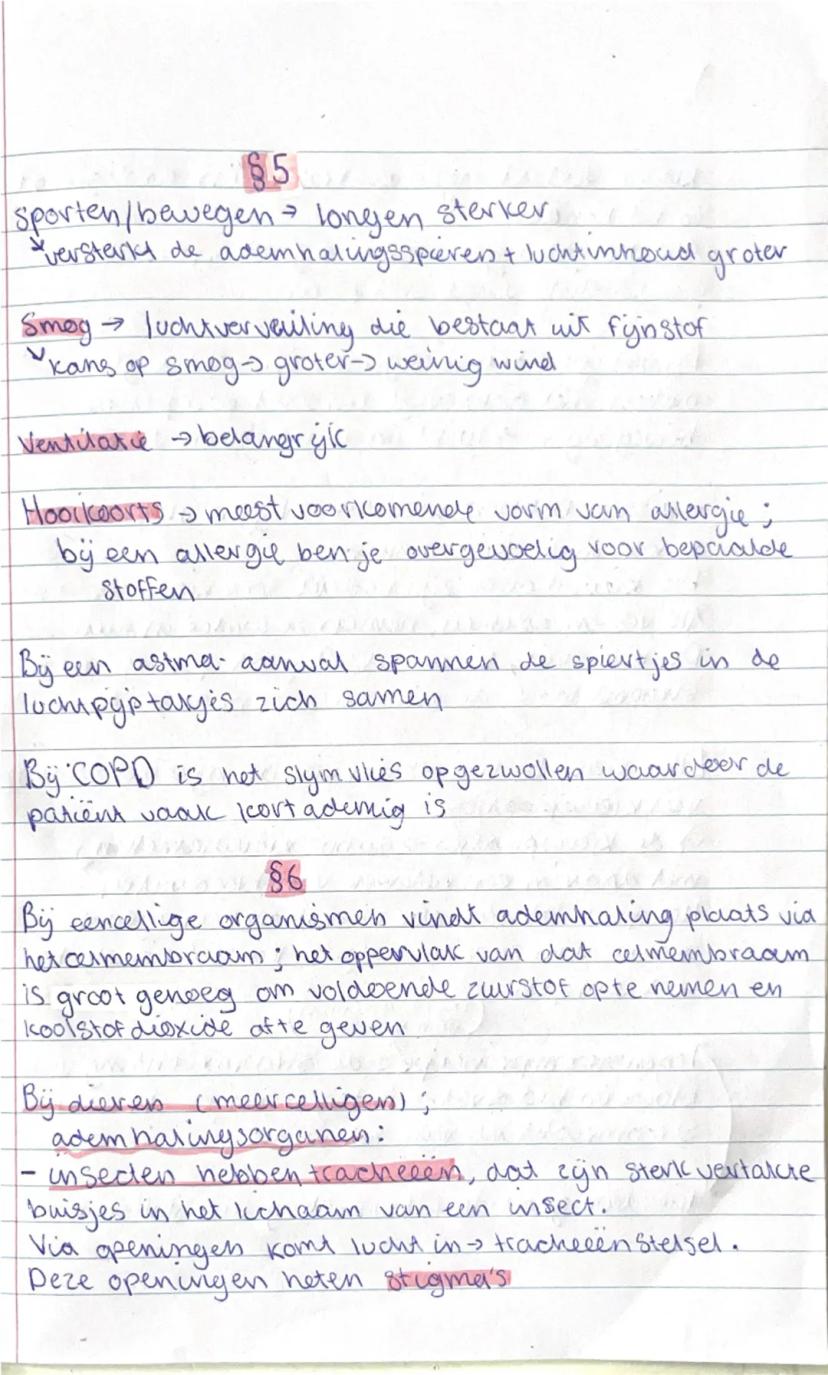 §5
sporten/bewegen → longen sterker
↳ versterkt de ademhalingsspieren + luchtinhoud groter
Smog → luchtvervuiling die bestaat uit fijnstof
↳ kans op smog → groter → weinig wind
Ventilatie → belangrijk
Hooikoorts → meest voorkomende vorm van allergie ;
bij een allergie ben je overgevoelig voor bepaalde
stoffen
Bij een astma-aanval spannen de spiertjes in de
luchtpijptakjes zich samen
Bij COPD is het slijmvlies opgezwollen waardoor de
patiënt vaak kortademig is
§6
Bij eencellige organismen vindt ademhaling plaats via
het celmembraam ; het oppervlak van dat celmembraam
is groot genoeg om voldoende zuurstof op te nemen en
koolstofdioxide af te geven
Bij dieren (meercelligen) ;
ademhalingsorganen :
- insecten hebben tracheeën, dat zijn sterk vertakte
buisjes in het lichaam van een insect.
Via openingen komt lucht in → tracheeënstelsel.
Deze openingen heten stigma's